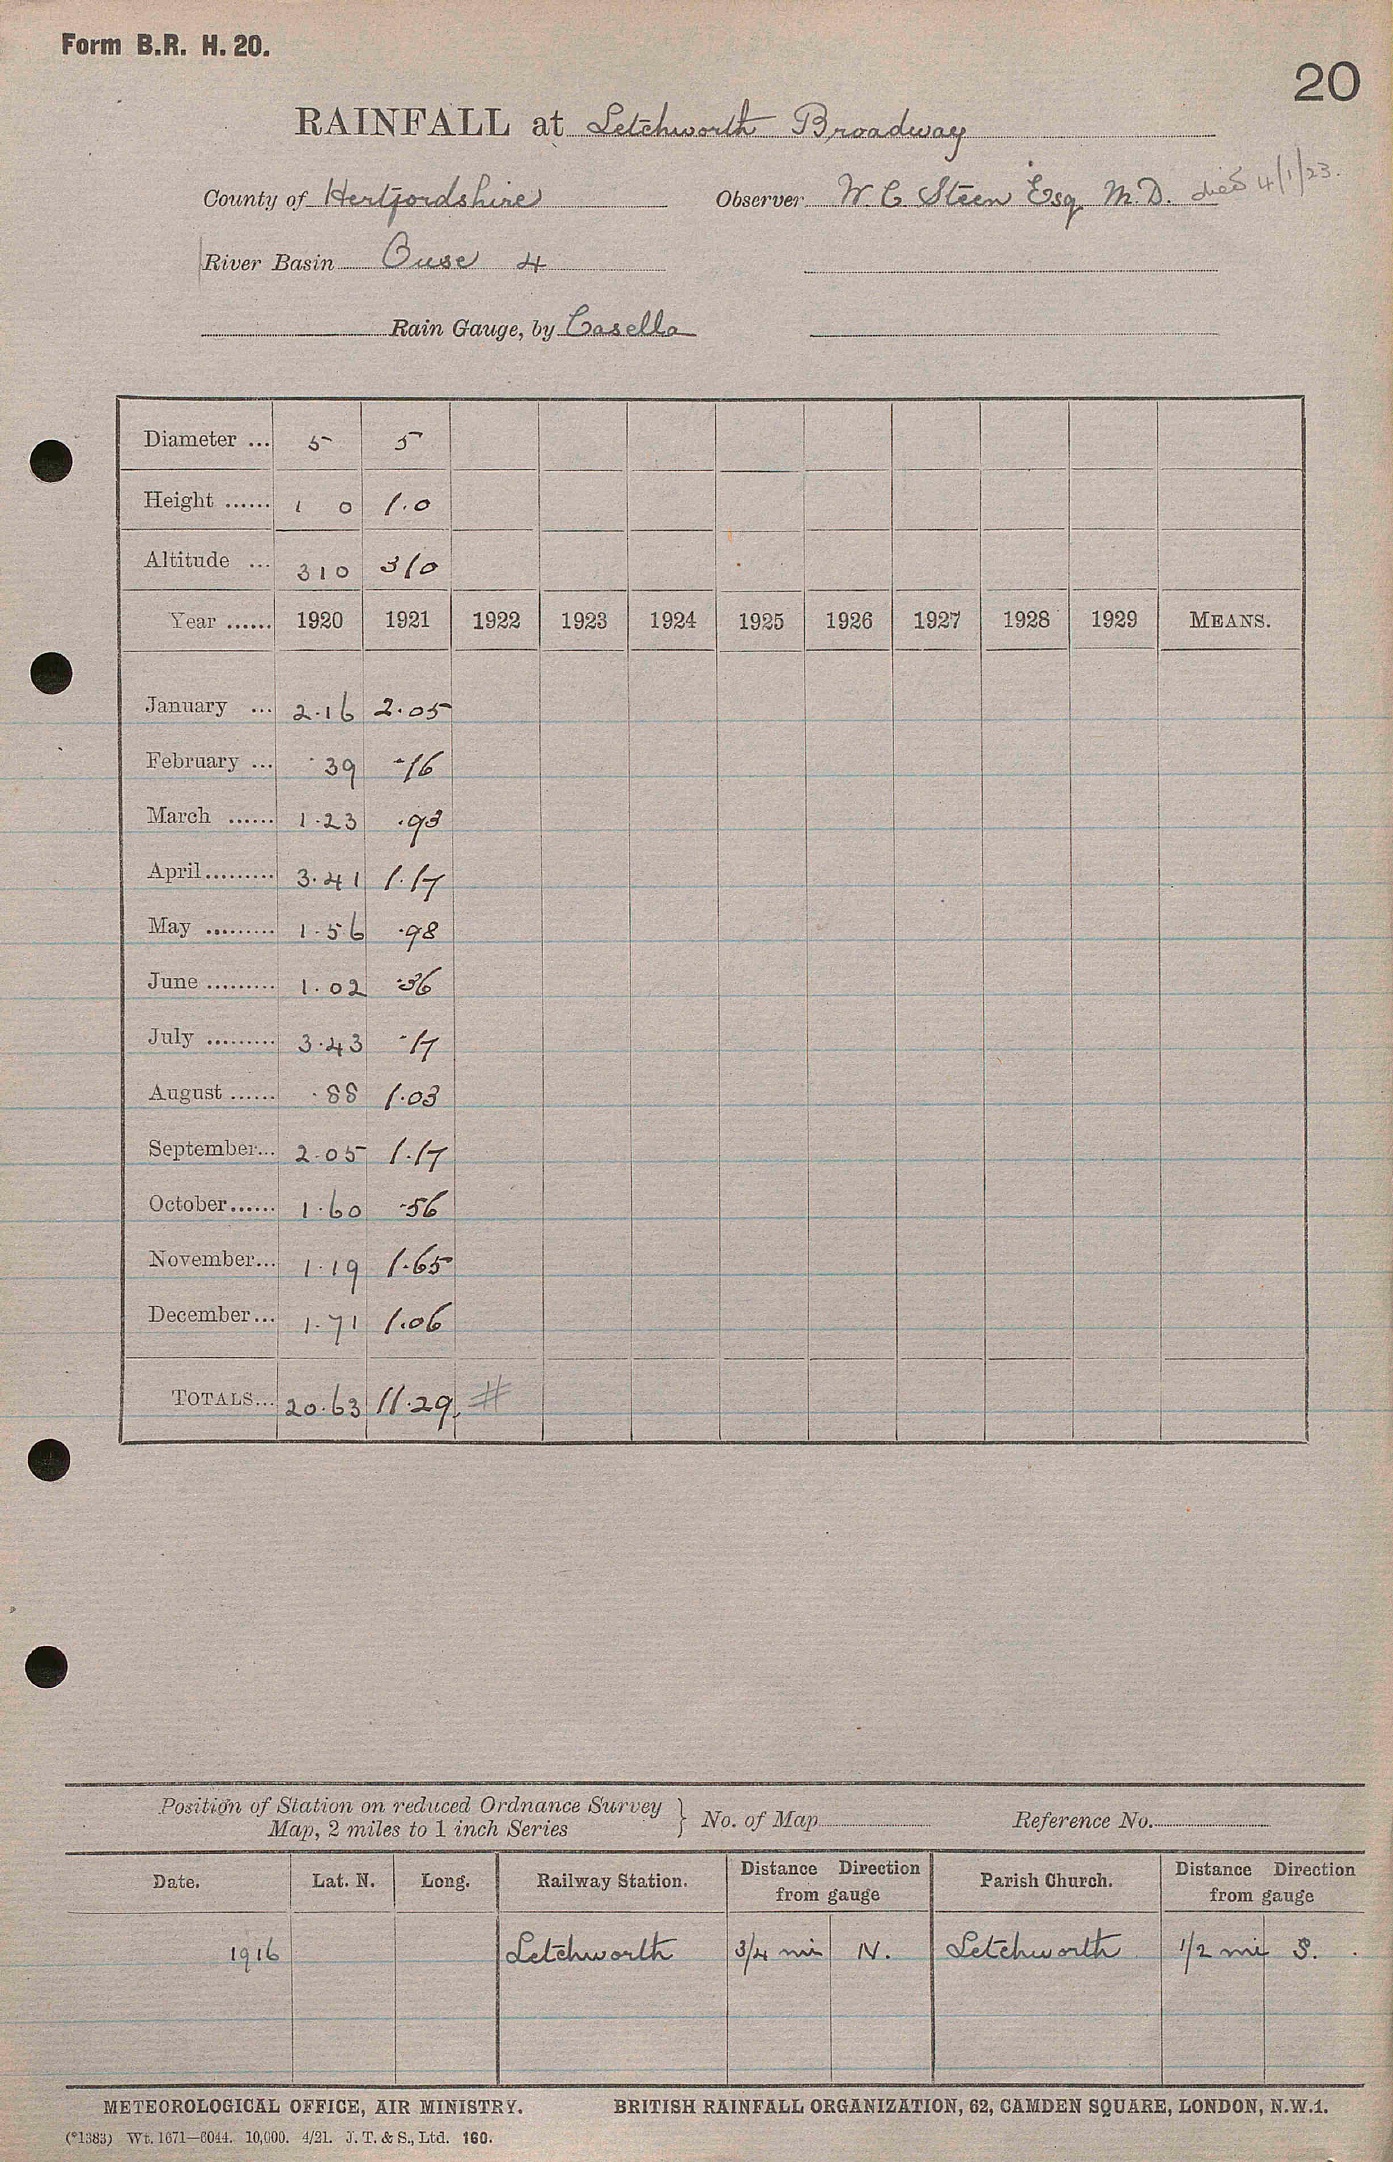 Form B.R. H. 20.
20
RAINFALL at Letchworth Broadway
County of Hertfordshire Observer W. C. Steen Esq M.D. died 4/1/23.
River Basin Ouse 4
Rain Gauge, by Casella
Diameter ... 5 5
Height ...... 1 0 1.0
Altitude ... 310 310
Year ...... 1920 1921 1922 1923 1924 1925 1926 1927 1928 1929 MEANS.
January ... 2.16 2.05
February ... .39 .16
March ...... 1.23 .93
April......... 3.41 1.17
May ......... 1.56 .98
June ......... 1.02 .36
July ......... 3.43 .17
August ...... .88 1.03
September... 2.05 1.17
October...... 1.60 .56
November... 1.19 1.65
December... 1.71 1.06
TOTALS... 20.63 11.29 #
Position of Station on reduced Ordnance Survey
Map, 2 miles to 1 inch Series } No. of Map Reference No.
Date. Lat. N. Long. Railway Station. Distance Direction from gauge Parish Church. Distance Direction from gauge
1916 Letchworth 3/4 mi N. Letchworth 1/2 mi S.
METEOROLOGICAL OFFICE, AIR MINISTRY. BRITISH RAINFALL ORGANIZATION, 62, CAMDEN SQUARE, LONDON, N.W.1.
(*1383) Wt. 1671—6044. 10,000. 4/21. J. T. & S., Ltd. 160.